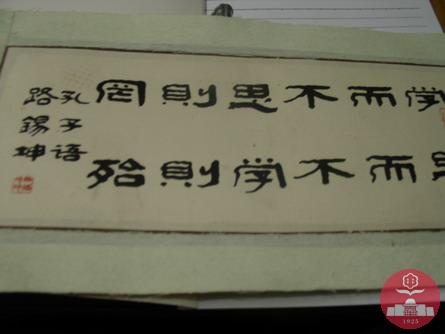 学而不思則罔
思而不学則殆
孔子语
路錫坤
1925